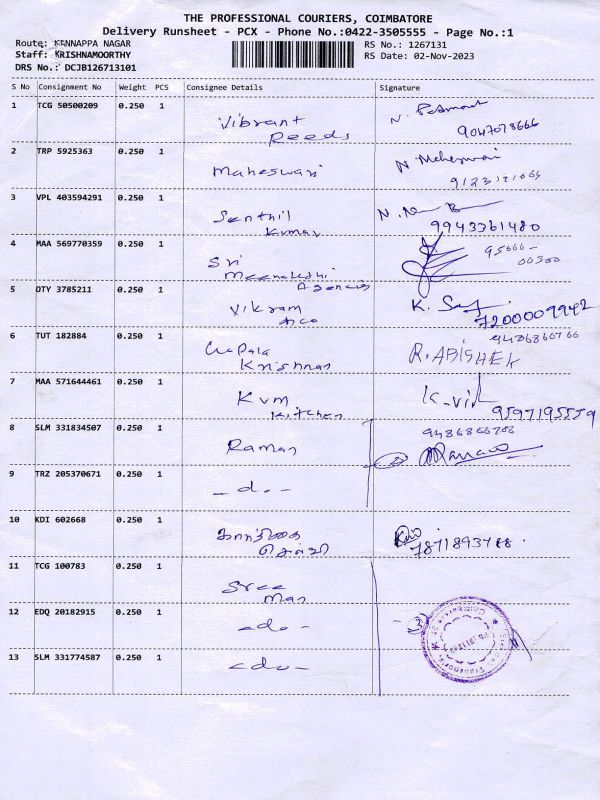 THE PROFESSIONAL COURIERS, COIMBATORE
Delivery Runsheet - PCX - Phone No.:0422-3505555 - Page No.:1
Route: KANNAPPA NAGAR
Staff: KRISHNAMOORTHY
DRS No.: DCJB126713101
RS No.: 1267131
RS Date: 02-Nov-2023
S No Consignment No Weight PCS Consignee Details Signature
1 TCG 50500209 0.250 1
Vibrant
Reeds
9047078666
2 TRP 5925363 0.250 1
Maheswari
3 VPL 403594291 0.250 1
Senthil
Kumar
9943361480
4 MAA 569770359 0.250 1
Sri
Meenakshi
Agencies
95666-
00300
5 OTY 3785211 0.250 1
Vikram
K.
7200009942
6 TUT 182884 0.250 1
Gopala
Krishnan
R. ABISHEK
7 MAA 571644461 0.250 1
Kvm
Kitchen
9597195559
8 SLM 331834507 0.250 1
Raman
9486866766
2
9 TRZ 205370671 0.250 1
- do -
10 KDI 602668 0.250 1
கார்த்திகை
செல்வி
11 TCG 100783 0.250 1
Sree
Man
12 EDQ 20182915 0.250 1
- do -
3
13 SLM 331774587 0.250 1
- do -